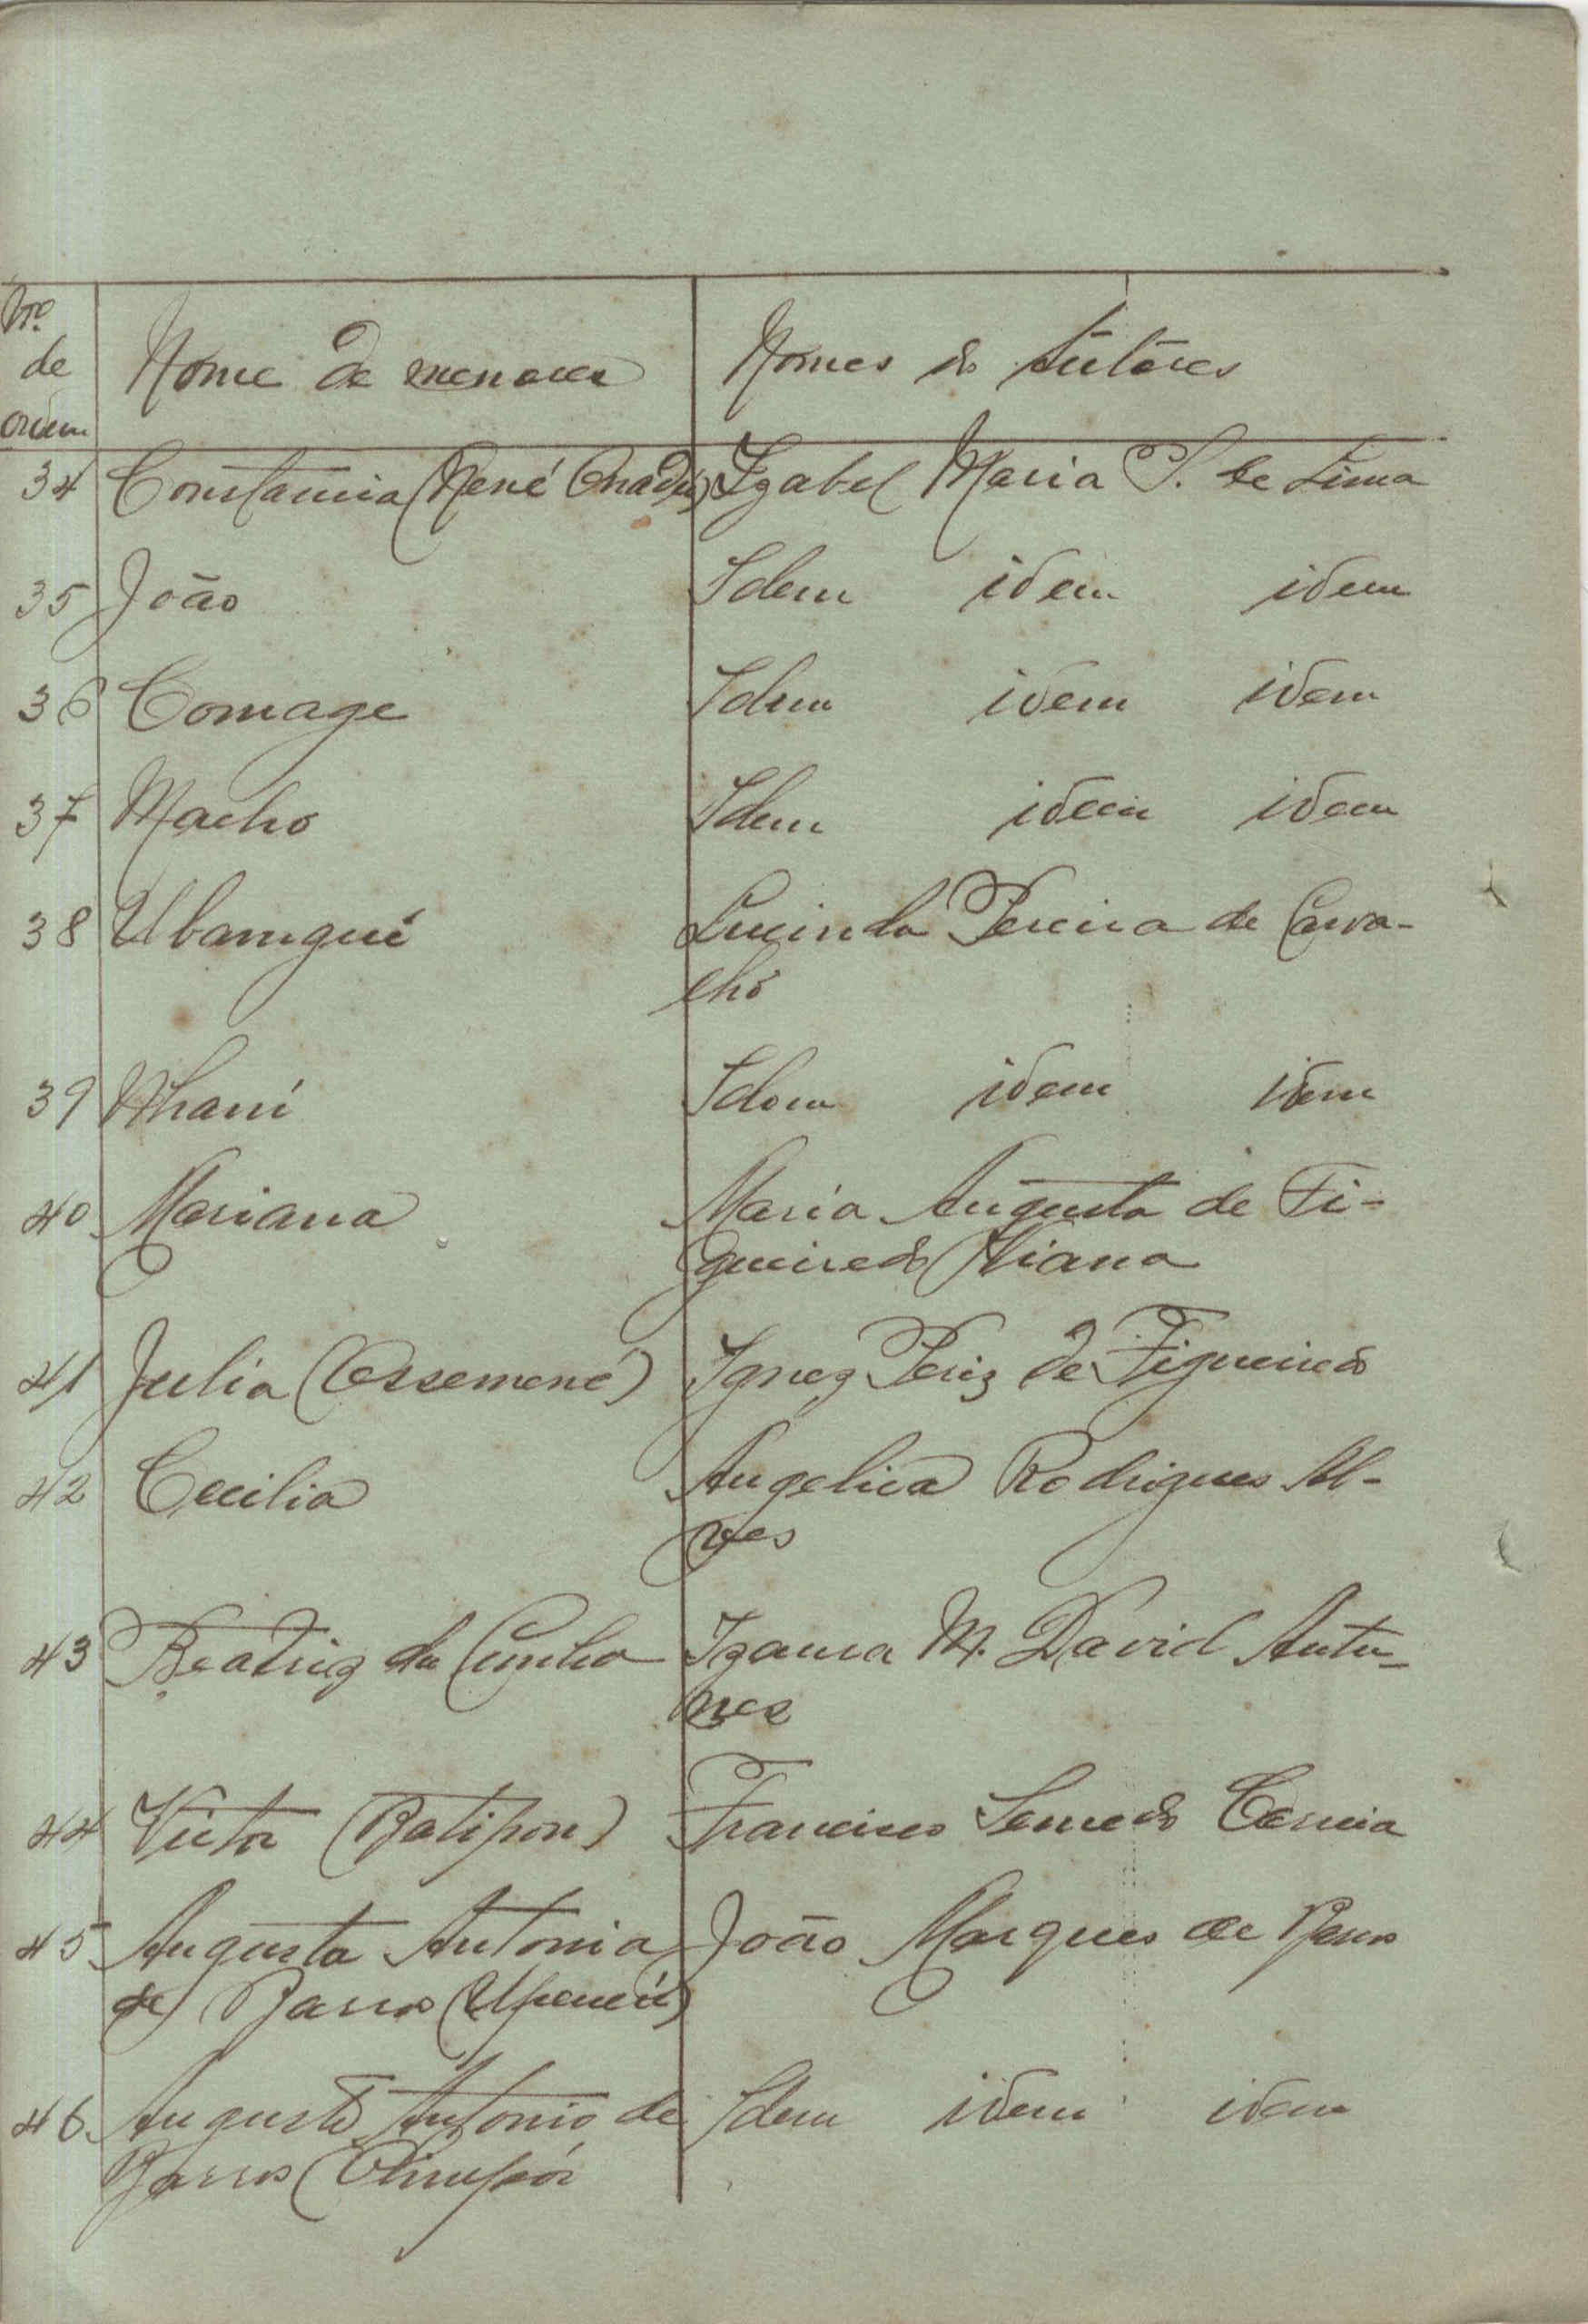 Nº
de
ordem
Nome de menores
Nomes do tutores
34 Constancia (René Izabel Maria P. de Lima
35 João Idem idem idem
36 Comage Idem idem idem
37 Macho Idem idem idem
38 Ubamgué Lucinda Pereira de Carva-
lho
39 Nhaní Idem idem idem
40 Mariana Maria Augusta de Fi-
gueiredo Viana
41 Julia (Ossemené) Ignez Periz de Figueiredo
42 Cecilia Angelica Rodrigues Al-
ves
43 Beatriz da Cunha Izaura M. David Antu-
nes
44 Victor (Batipon) Francisco Semedo Correia
45 Augusta Antonia João Marques de Barros
de Barros
46 Augusto Antonio de Idem idem idem
Barros